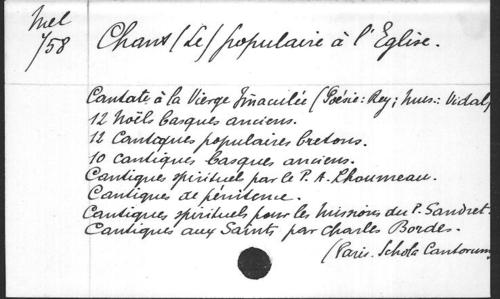 Mel
1/58
Chant (Le) populaire à l'Eglise.
Cantate à la Vierge Imaculée (Poésie: Rey; Mus.: Vidal)
12 Noëls basques anciens.
12 Cantiques populaires bretons.
10 cantiques basques anciens.
Cantiques spirituel par le P. A. Lhoumeau.
Cantiques de pénitence.
Cantiques spirituels pour les missions du P. Sandret.
Cantiques aux Saints par Charles Bordes.
(Paris. Schola Cantorum